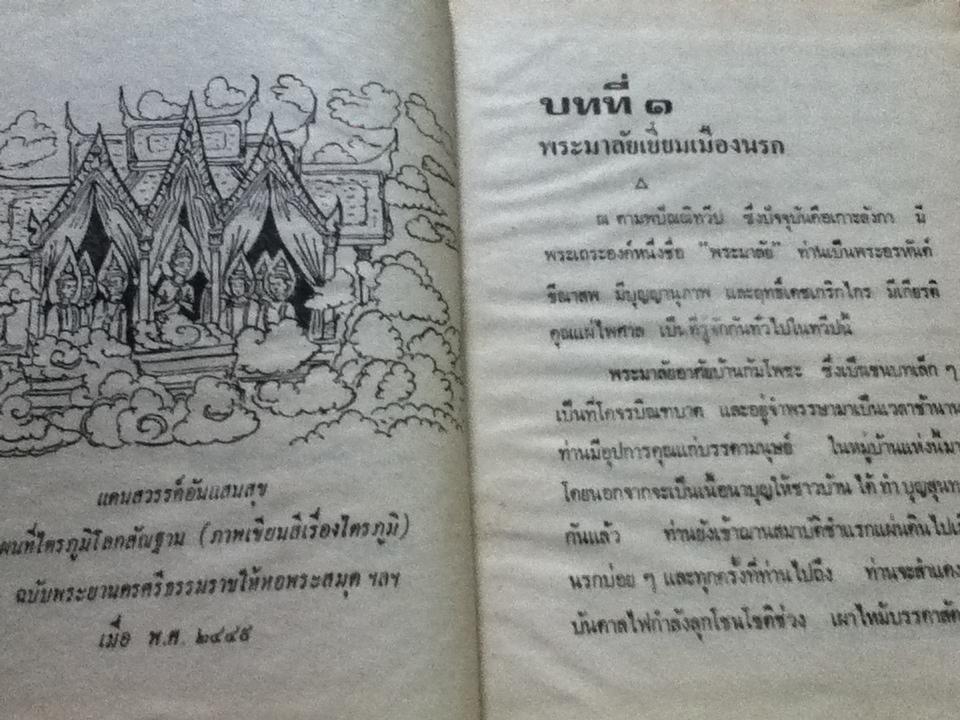 แดนสวรรค์อันแสนสุข
ผนที่ไตรภูมิโลกสัณฐาน (ภาพเขียนสีเรื่องไตรภูมิ)
ฉบับพระยานครศรีธรรมราชให้หอพระสมุด ฯลฯ
เมื่อ พ.ศ. ๒๔๔๕
บทที่ ๑
พระมาลัยเยี่ยมเมืองนรก
ณ ตามพปัณณิทวีป ซึ่งปัจจุบันคือเกาะลังกา มี
พระเถระองค์หนึ่งชื่อ "พระมาลัย" ท่านเป็นพระอรหันต์
ขีณาสพ มีบุญญานุภาพ และฤทธิ์เดชเกริกไกร มีเกียรติ
คุณแผ่ไพศาล เป็นที่รู้จักกันทั่วไปในทวีปนี้
พระมาลัยอาศัยบ้านกัมโพชะ ซึ่งเป็นชนบทเล็ก ๆ
เป็นที่โคจรบิณฑบาต และอยู่จำพรรษามาเป็นเวลาช้านาน
ท่านมีอุปการคุณแก่บรรดามนุษย์ ในหมู่บ้านแห่งนี้มา
โดยนอกจากจะเป็นเนื้อนาบุญให้ชาวบ้าน ได้ ทำ บุญสุนท
กันแล้ว ท่านยังเข้าฌานสมาบัติชำแรกแผ่นดินไปเ
นรกบ่อย ๆ และทุกครั้งที่ท่านไปถึง ท่านจะสำแดง
บันดาลไฟกำลังลุกโชนโชติช่วง เผาไหม้บรรดาสัต